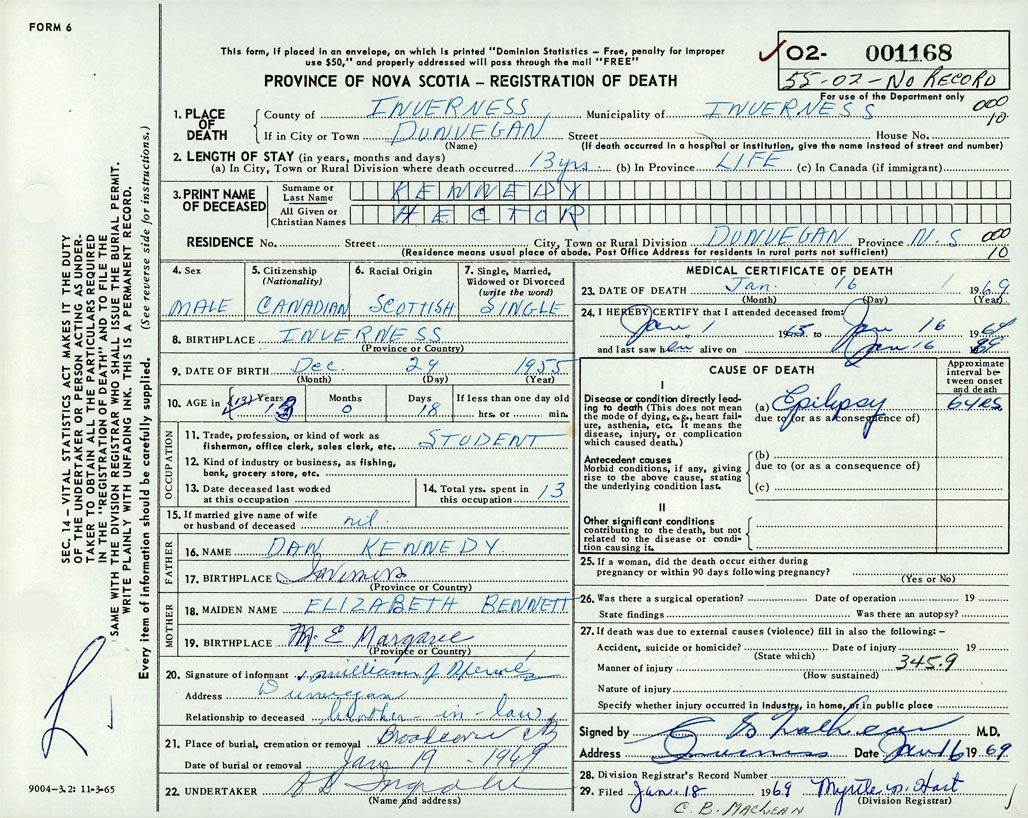 FORM 6
This form, if placed in an envelope, on which is printed "Dominion Statistics – Free, penalty for improper
use $50," and properly addressed will pass through the mail "FREE"
PROVINCE OF NOVA SCOTIA – REGISTRATION OF DEATH
✓ 02- 001168
55-02-No Record
For use of the Department only
000
10
1. PLACE OF DEATH
County of INVERNESS Municipality of INVERNESS
If in City or Town DUNVEGAN Street House No.
(Name) (If death occurred in a hospital or institution, give the name instead of street and number)
2. LENGTH OF STAY (in years, months and days)
(a) In City, Town or Rural Division where death occurred 13 yrs. (b) In Province LIFE (c) In Canada (if immigrant)
3. PRINT NAME OF DECEASED
Surname or Last Name KENNEDY
All Given or Christian Names HECTOR
RESIDENCE No. Street City, Town or Rural Division DUNVEGAN Province N.S 000
(Residence means usual place of abode. Post Office Address for residents in rural parts not sufficient) 10
4. Sex MALE
5. Citizenship (Nationality) CANADIAN
6. Racial Origin SCOTTISH
7. Single, Married, Widowed or Divorced (write the word) SINGLE
8. BIRTHPLACE INVERNESS
(Province or Country)
9. DATE OF BIRTH Dec. 29 1955
(Month) (Day) (Year)
10. AGE in (13) Years 13 Months 0 Days 18 If less than one day old
hrs. or min.
OCCUPATION
11. Trade, profession, or kind of work as
fisherman, office clerk, sales clerk, etc. STUDENT
12. Kind of industry or business, as fishing,
bank, grocery store, etc.
13. Date deceased last worked
at this occupation
14. Total yrs. spent in
this occupation 13
15. If married give name of wife
or husband of deceased nil.
FATHER
16. NAME DAN KENNEDY
17. BIRTHPLACE Inverness
(Province or Country)
MOTHER
18. MAIDEN NAME ELIZABETH BENNETT
19. BIRTHPLACE Margaree
(Province or Country)
20. Signature of informant William J
Address Dunvegan
Relationship to deceased brother-in-law
21. Place of burial, cremation or removal
Date of burial or removal Jan 19 - 1969
22. UNDERTAKER
(Name and address)
MEDICAL CERTIFICATE OF DEATH
23. DATE OF DEATH Jan. 16 1969
(Month) (Day) (Year)
24. I HEREBY CERTIFY that I attended deceased from:
Jan 1 1965 to Jan 16 1969
and last saw him alive on Jan 16 1969
CAUSE OF DEATH
Approximate interval between onset and death
I
Disease or condition directly lead-
ing to death (This does not
mean the mode of dying, e.g., heart fail-
ure, asthenia, etc. It means the
disease, injury, or complication
which caused death.)
(a) Epilepsy 6 yrs
due to (or as a consequence of)
Antecedent causes
Morbid conditions, if any, giving
rise to the above cause, stating
the underlying condition last.
(b)
due to (or as a consequence of)
(c)
II
Other significant conditions
contributing to the death, but not
related to the disease or condi-
tion causing it.
25. If a woman, did the death occur either during
pregnancy or within 90 days following pregnancy?
(Yes or No)
26. Was there a surgical operation? Date of operation 19
State findings Was there an autopsy?
27. If death was due to external causes (violence) fill in also the following: –
Accident, suicide or homicide? Date of injury 19
(State which)
Manner of injury 345.9
(How sustained)
Nature of injury
Specify whether injury occurred in industry, in home, or in public place
Signed by M.D.
Address Inverness Date Jan 16 1969
28. Division Registrar's Record Number
29. Filed Jan. 18 1969 Myrtle M. Hart
(Division Registrar)
C. B. MACLEAN
SEC. 14 – VITAL STATISTICS ACT MAKES IT THE DUTY
OF THE UNDERTAKER OR PERSON ACTING AS UNDER-
TAKER TO OBTAIN ALL THE PARTICULARS REQUIRED
IN THE "REGISTRATION OF DEATH" AND TO FILE THE
SAME WITH THE DIVISION REGISTRAR WHO SHALL ISSUE THE BURIAL PERMIT.
WRITE PLAINLY WITH UNFADING INK. THIS IS A PERMANENT RECORD.
Every item of information should be carefully supplied. (See reverse side for instructions.)
9004-3.2: 11-3-65